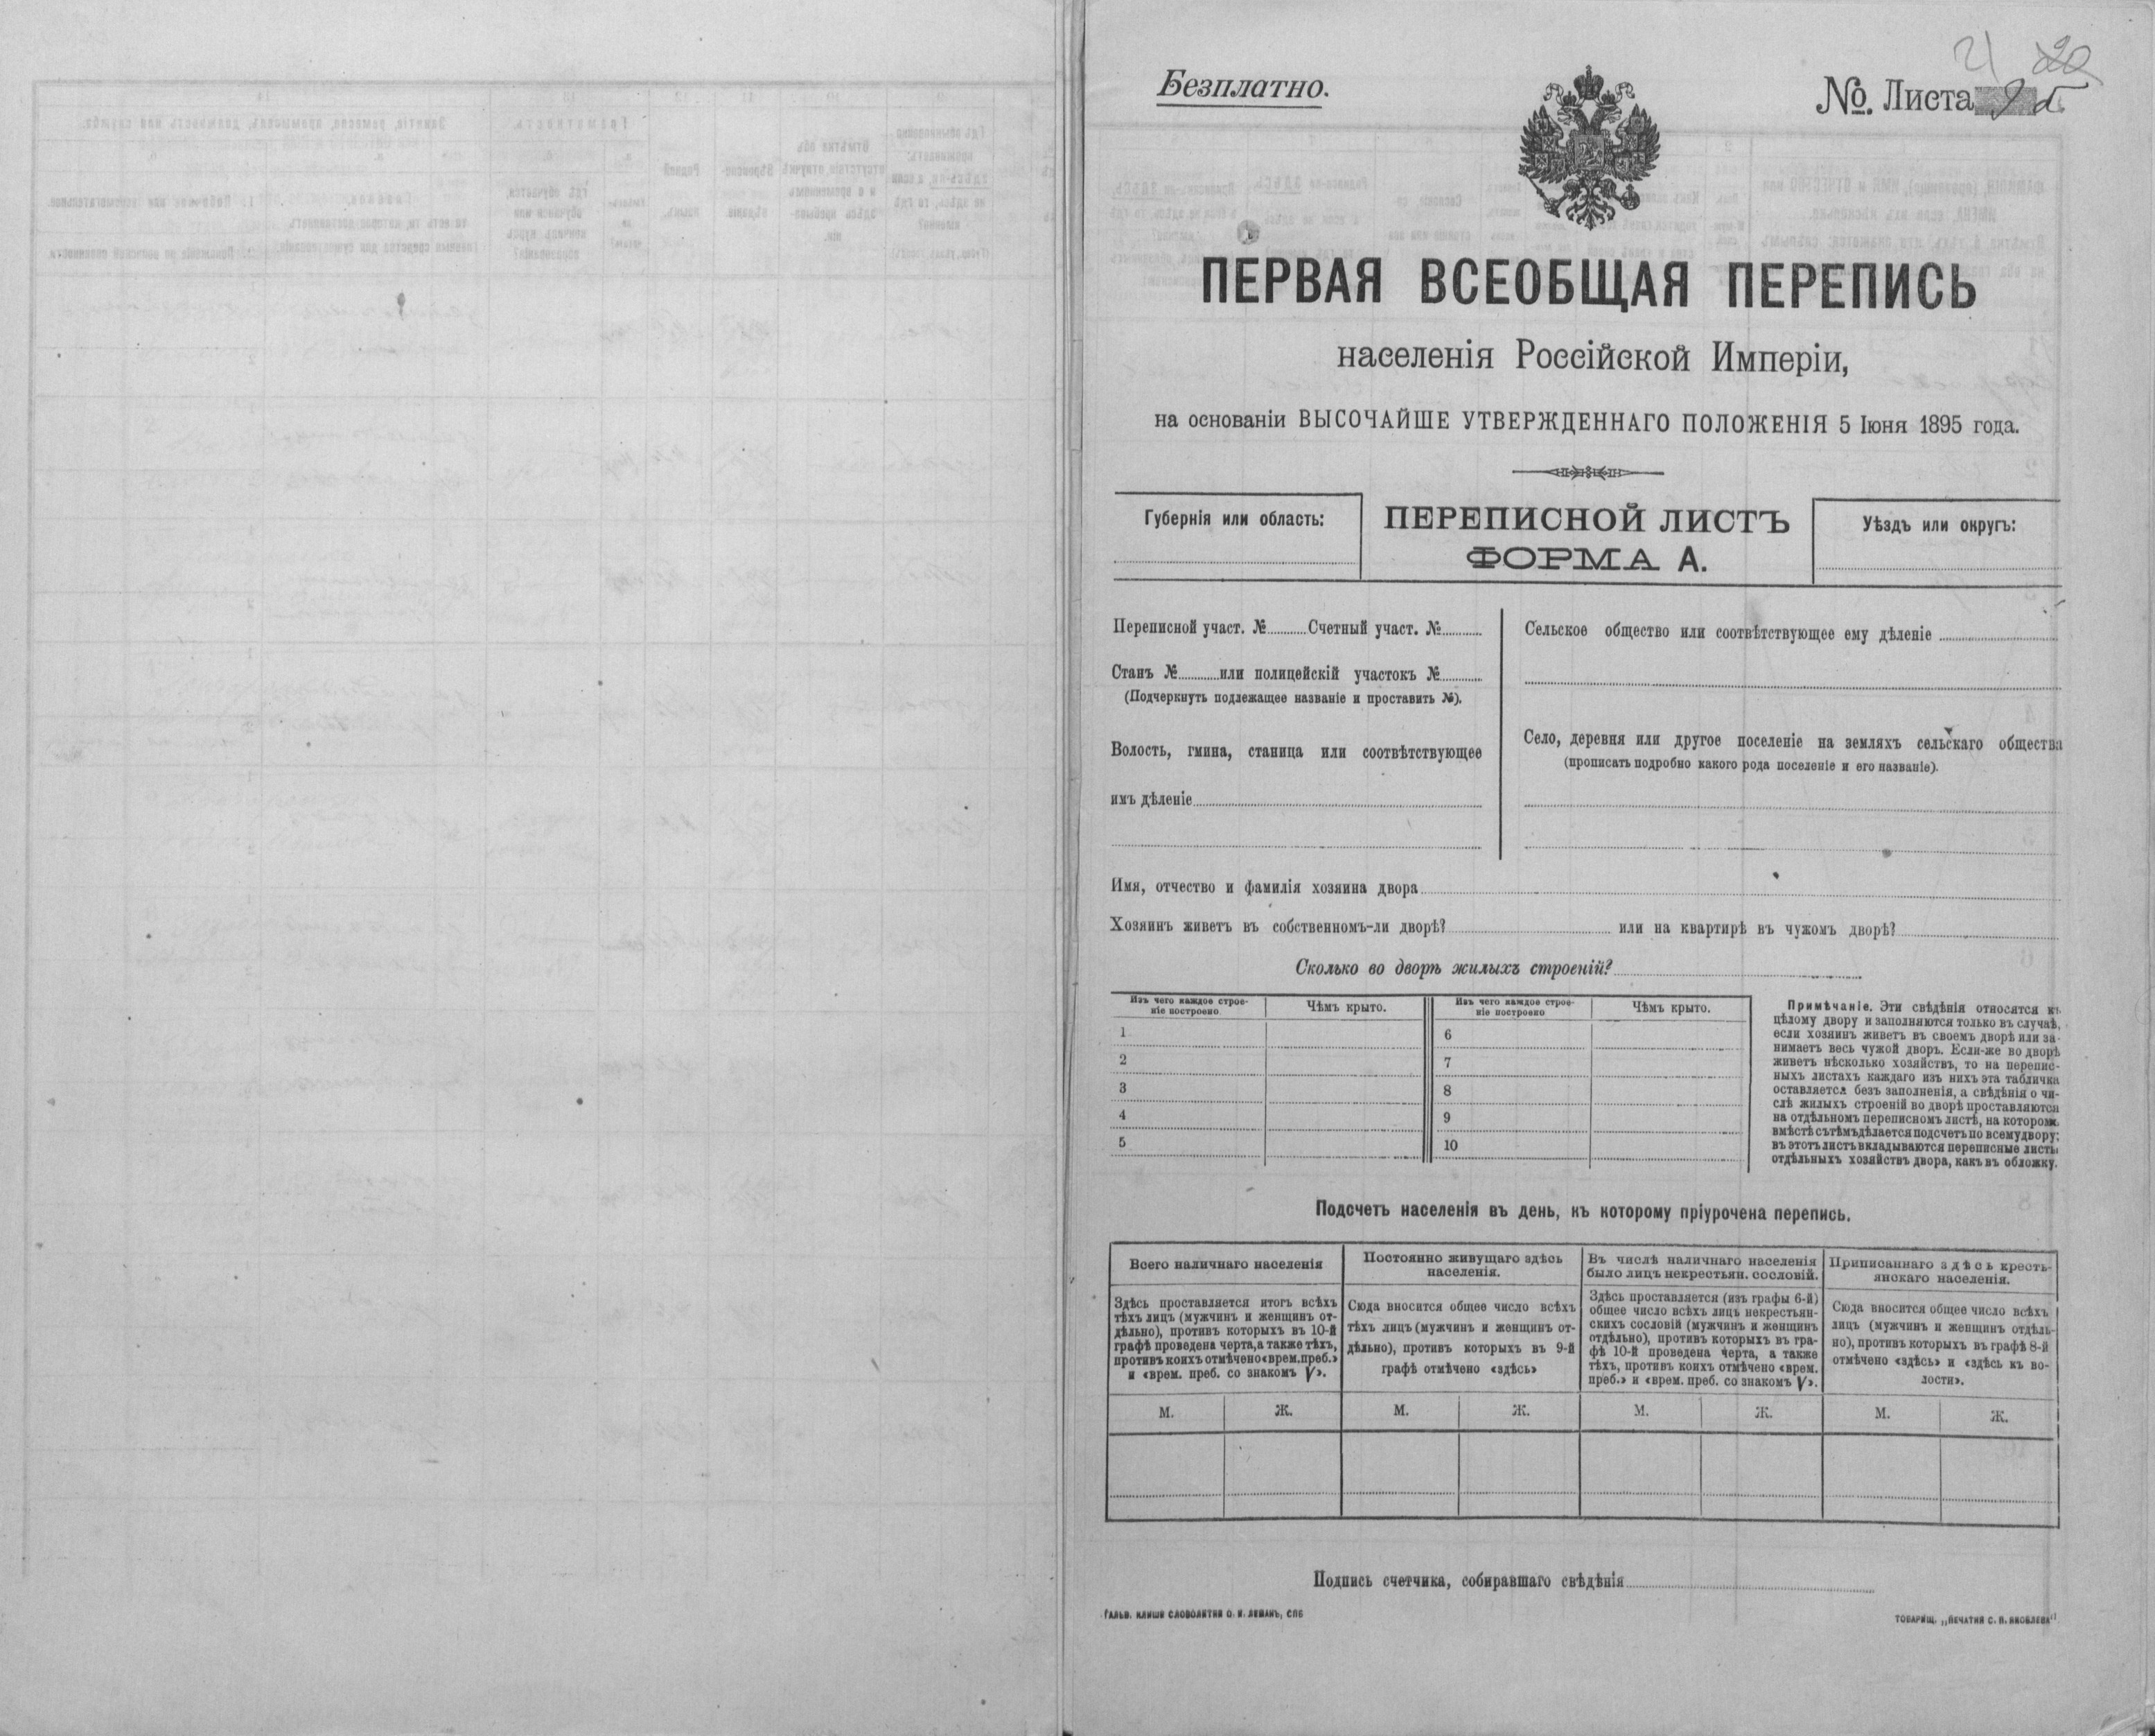 21 20
Безплатно.
№. Листа 9 б
ПЕРВАЯ ВСЕОБЩАЯ ПЕРЕПИСЬ
населенія Россійской Имперіи,
на основаніи ВЫСОЧАЙШЕ УТВЕРЖДЕННАГО ПОЛОЖЕНІЯ 5 Іюня 1895 года.
Губернія или область:
ПЕРЕПИСНОЙ ЛИСТЪ
ФОРМА А.
Уѣздъ или округъ:
Переписной участ. № Счетный участ. №
Станъ № или полицейскій участокъ №
(Подчеркнуть подлежащее названіе и проставить №).
Волость, гмина, станица или соотвѣтствующее
имъ дѣленіе
Сельское общество или соотвѣтствующее ему дѣленіе
Село, деревня или другое поселеніе на земляхъ сельскаго общества
(прописать подробно какого рода поселеніе и его названіе).
Имя, отчество и фамилія хозяина двора
Хозяинъ живетъ въ собственномъ-ли дворѣ? или на квартирѣ въ чужомъ дворѣ?
Сколько во дворѣ жилыхъ строеній?
Изъ чего каждое строе-
ніе построено
Чѣмъ крыто.
Изъ чего каждое строе-
ніе построено
Чѣмъ крыто.
1
2
3
4
5
6
7
8
9
10
Примѣчаніе. Эти свѣдѣнія относятся къ
цѣлому двору и заполняются только въ случаѣ,
если хозяинъ живетъ въ своемъ дворѣ или за-
нимаетъ весь чужой дворъ. Если-же во дворѣ
живетъ нѣсколько хозяйствъ, то на перепис-
ныхъ листахъ каждаго изъ нихъ эта табличка
оставляется безъ заполненія, а свѣдѣнія о чи-
слѣ жилыхъ строеній во дворѣ проставляются
на отдѣльномъ переписномъ листѣ, на которомъ
вмѣстѣ съ тѣмъ дѣлается подсчетъ по всему двору;
въ этотъ листъ вкладываются переписные листы
отдѣльныхъ хозяйствъ двора, какъ въ обложку.
Подсчетъ населенія въ день, къ которому пріурочена перепись.
Всего наличнаго населенія
Здѣсь проставляется итогъ всѣхъ
тѣхъ лицъ (мужчинъ и женщинъ от-
дѣльно), противъ которыхъ въ 10-й
графѣ проведена черта, а также тѣхъ,
противъ коихъ отмѣчено «врем. преб.»
и «врем. преб. со знакомъ V».
Постоянно живущаго здѣсь
населенія.
Сюда вносится общее число всѣхъ
тѣхъ лицъ (мужчинъ и женщинъ от-
дѣльно), противъ которыхъ въ 9-й
графѣ отмѣчено «здѣсь»
Въ числѣ наличнаго населенія
было лицъ некрестьян. сословій.
Здѣсь проставляется (изъ графы 6-й)
общее число всѣхъ лицъ некрестьян-
скихъ сословій (мужчинъ и женщинъ
отдѣльно), противъ которыхъ въ гра-
фѣ 10-й проведена черта, а также
тѣхъ, противъ коихъ отмѣчено «врем.
преб.» и «врем. преб. со знакомъ V».
Приписаннаго здѣсь кресть-
янскаго населенія.
Сюда вносится общее число всѣхъ
лицъ (мужчинъ и женщинъ отдѣль-
но), противъ которыхъ въ графѣ 8-й
отмѣчено «здѣсь» и «здѣсь къ во-
лости».
М. Ж. М. Ж. М. Ж. М. Ж.
Подпись счетчика, собиравшаго свѣдѣнія
ГАЛЬВ. КЛИШЕ СЛОВОЛИТНИ О. И. ЛЕМАНЪ, СПБ
ТОВАРИЩ. „ПЕЧАТНЯ С. П. ЯКОВЛЕВА"